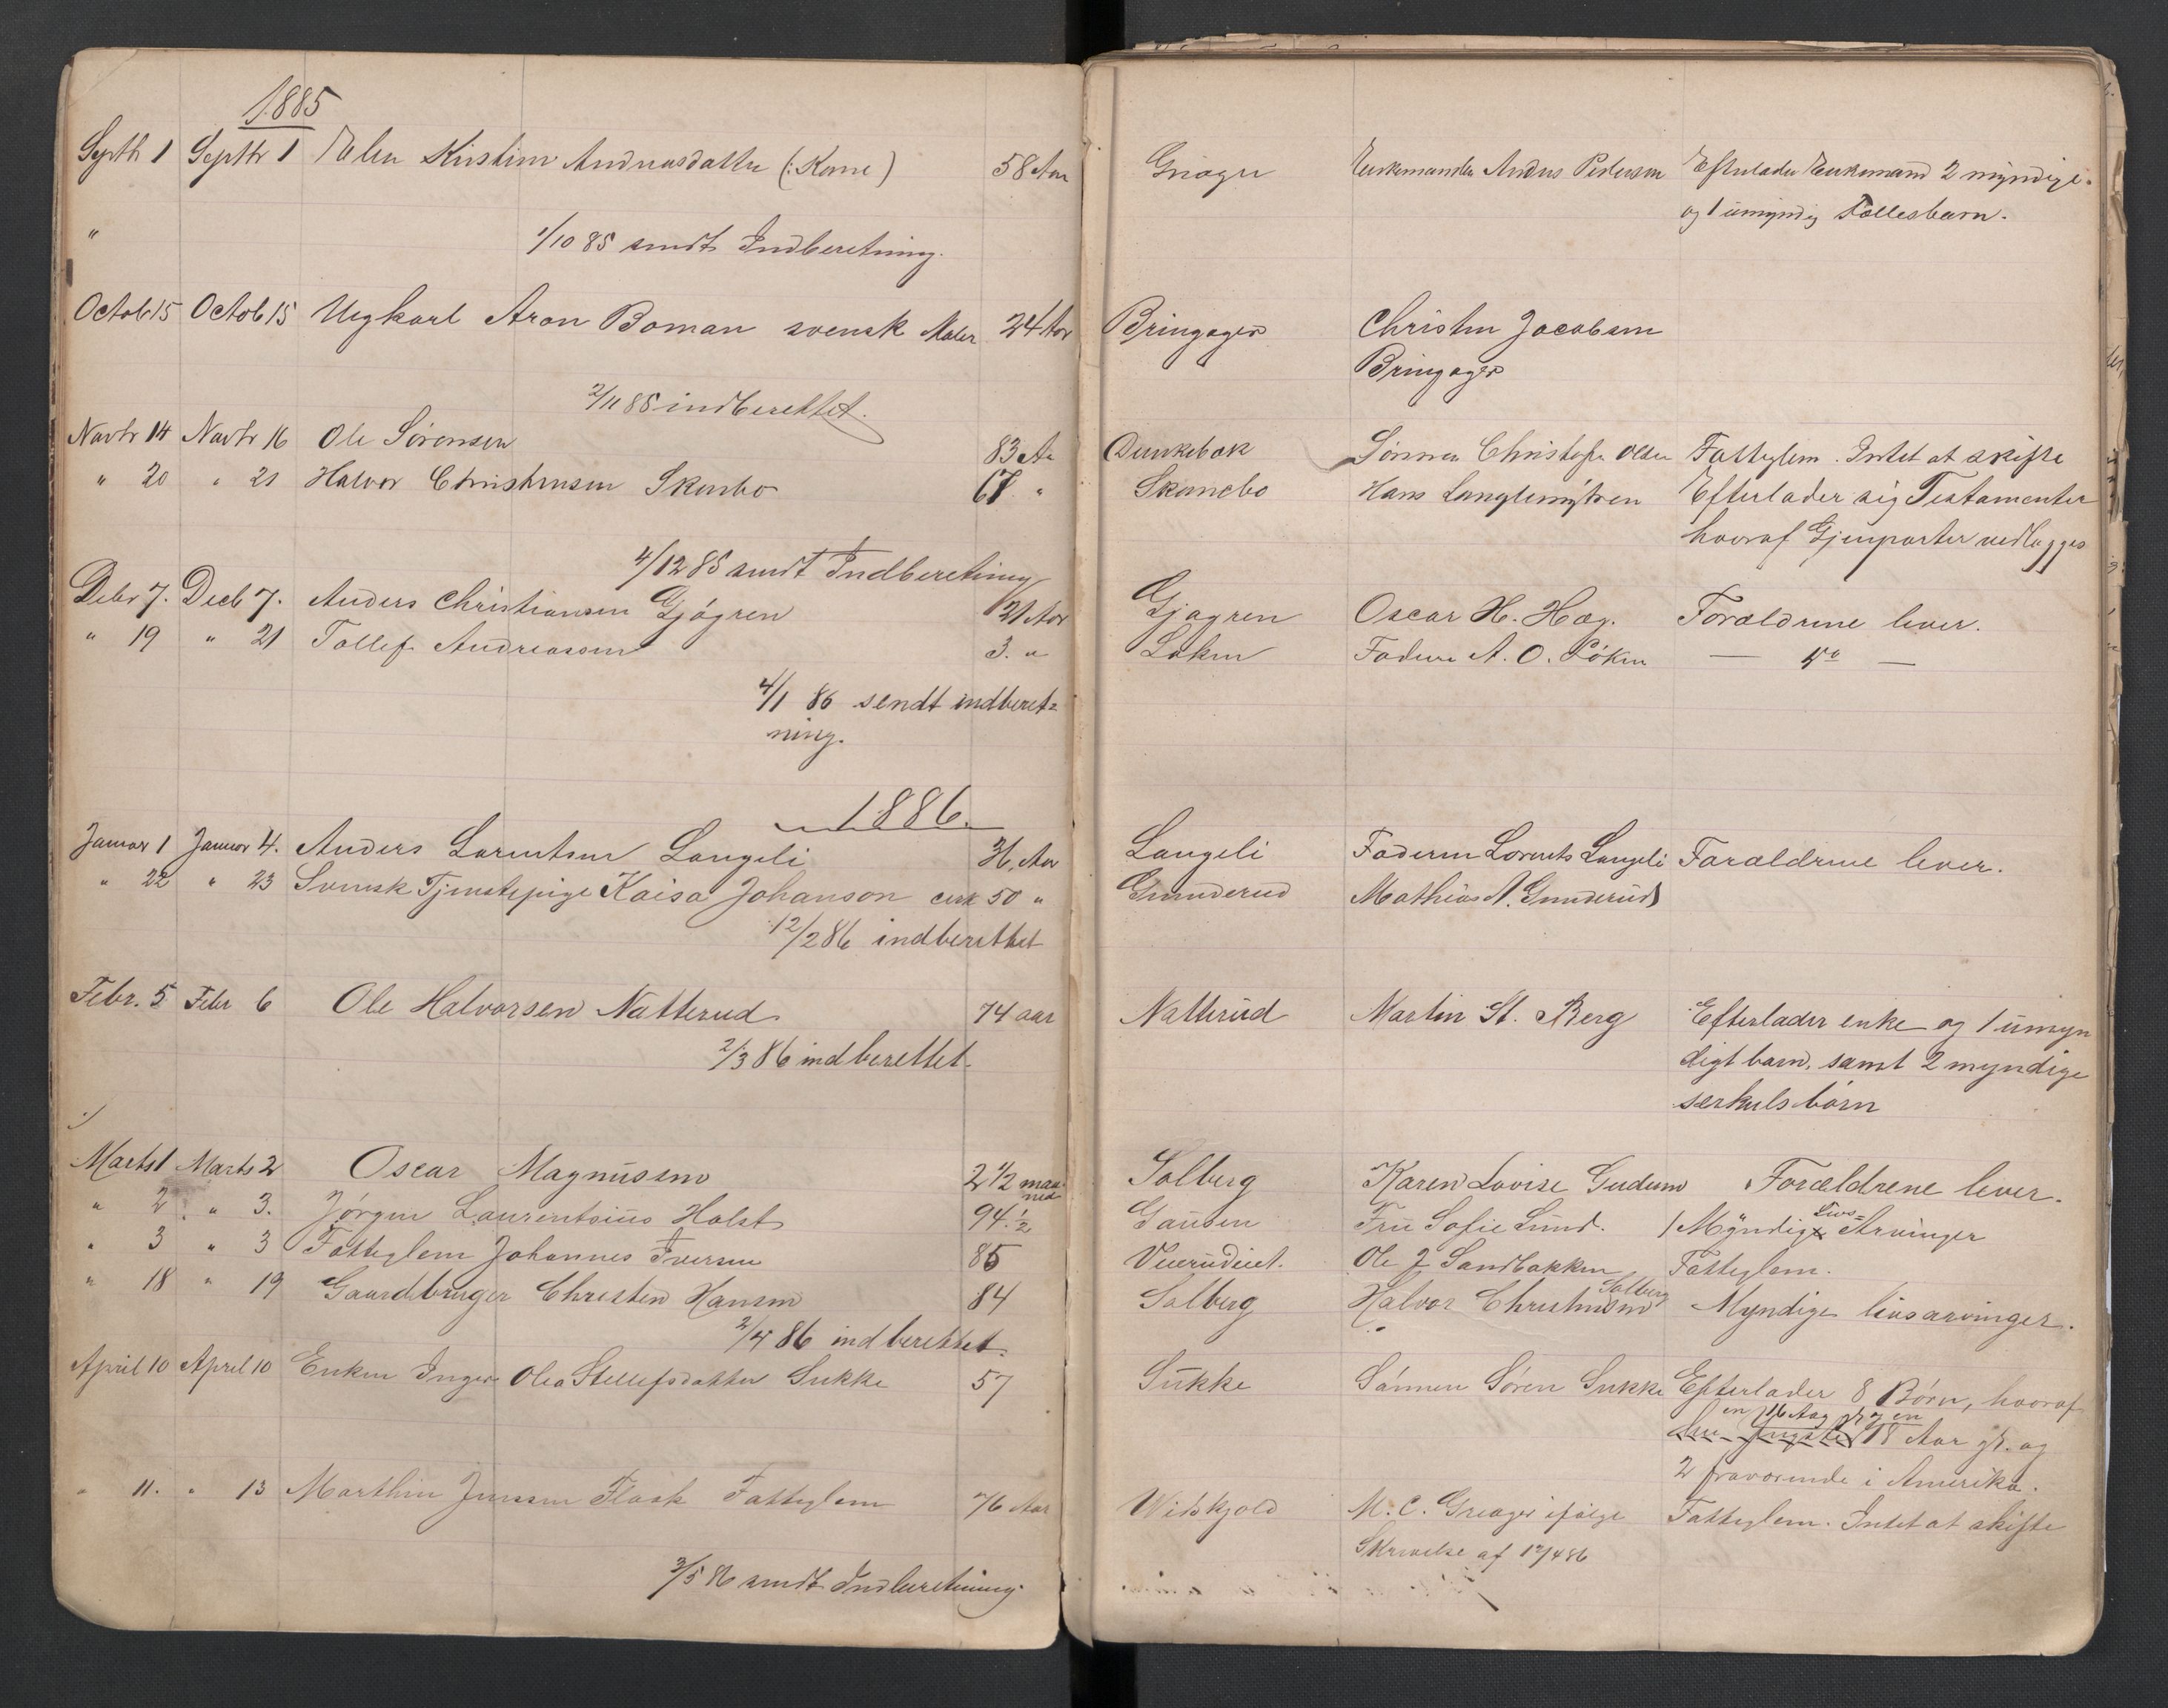 1885
Septb 1 Septbr 1 Elen Kirstine Andreasdatter (: Kone) 58 Aar Griager Enkemanden Andreas Pedersen Efterlader Enkemand 2 myndige
og 1 umyndig Fællesbarn.
" 1/10 85 sendt Indberetning.
Octob 15 Octob 15 Ungkarl Aron Boman svensk Maler 24 Aar Bringager Christen Jacobsen
Bringager
2/11 85 indberettet.
Novbr 14 Novbr 16 Ole Sørensen 83 Aar Dunkebæk Sønnen Christofer Olsen Fattiglem. Intet at skifte
" 20 " 21 Halvor Christensen Skarbo 67 " Skarebo Hans Langlemyhren Efterlader sig Testamenter
hvoraf Gjenparter vedlægges
4/12 85 sendt Indberetning
Debr 7. Decb 7. Anders Christiansen Gjøgren 21 Aar Gjøgren Oscar H. Hæg. Forældrene lever.
" 19 " 21 Tollef Andreassen 3. " Løken Faderen A. O. Løken — do —
4/1 86 sendt indberet=
ning.
1886.
Januar 1 Januar 4. Anders Larentsen Langeli 36, Aar Langeli Faderen Lorents Langeli Forældrene lever.
" 22 " 23 Svensk Tjenstepige Kaisa Johanson cirk 50 " Gunderud Mathias A. Gunderud
12/2 86 indberettet
Febr. 5 Febr 6 Ole Halvorsen Natterud 74 aar Natterud Martin St. Berg Efterlader enke og 1 umyn
digt barn, samt 2 myndige
særkuls børn
2/3 86 indberettet.
Marts 1 Marts 2 Oscar Magnussen 2 1/2 maa
ned Solberg Karen Lovise Gudem Forældrene lever.
" 2 " 3. Jørgen Laurentsius Holst 94 1/2 Gausen Fru Sofie Lund. 1 Myndig Livs= Arvinger
" 3 " 3 Fattiglem Johannes Iversen 85 Ole J Sandbakken Fattiglem.
" 18 " 19 Gaardbruger Christen Hansen 84 Solberg Halvor Christensen Solberg Myndige livsarvinger.
2/4 86 indberettet.
April 10 April 10 Enken Inger Olea Stellefsdatter Sukke 57 Sukke Sønnen Søren Sukke Efterlader 8 Børn, hvoraf
en 16 Aar gl og en
den yngste 18 Aar gl. og
2 fraværende i Amerika.
" 11. " 13 Marthin Jensen Flaak Fattiglem 76 Aar Widskjold M. C. Greager ifølge Fattiglem. Intet at skifte
Skrivelse af 12/4 86
3/5 86 sendt Indberetning.